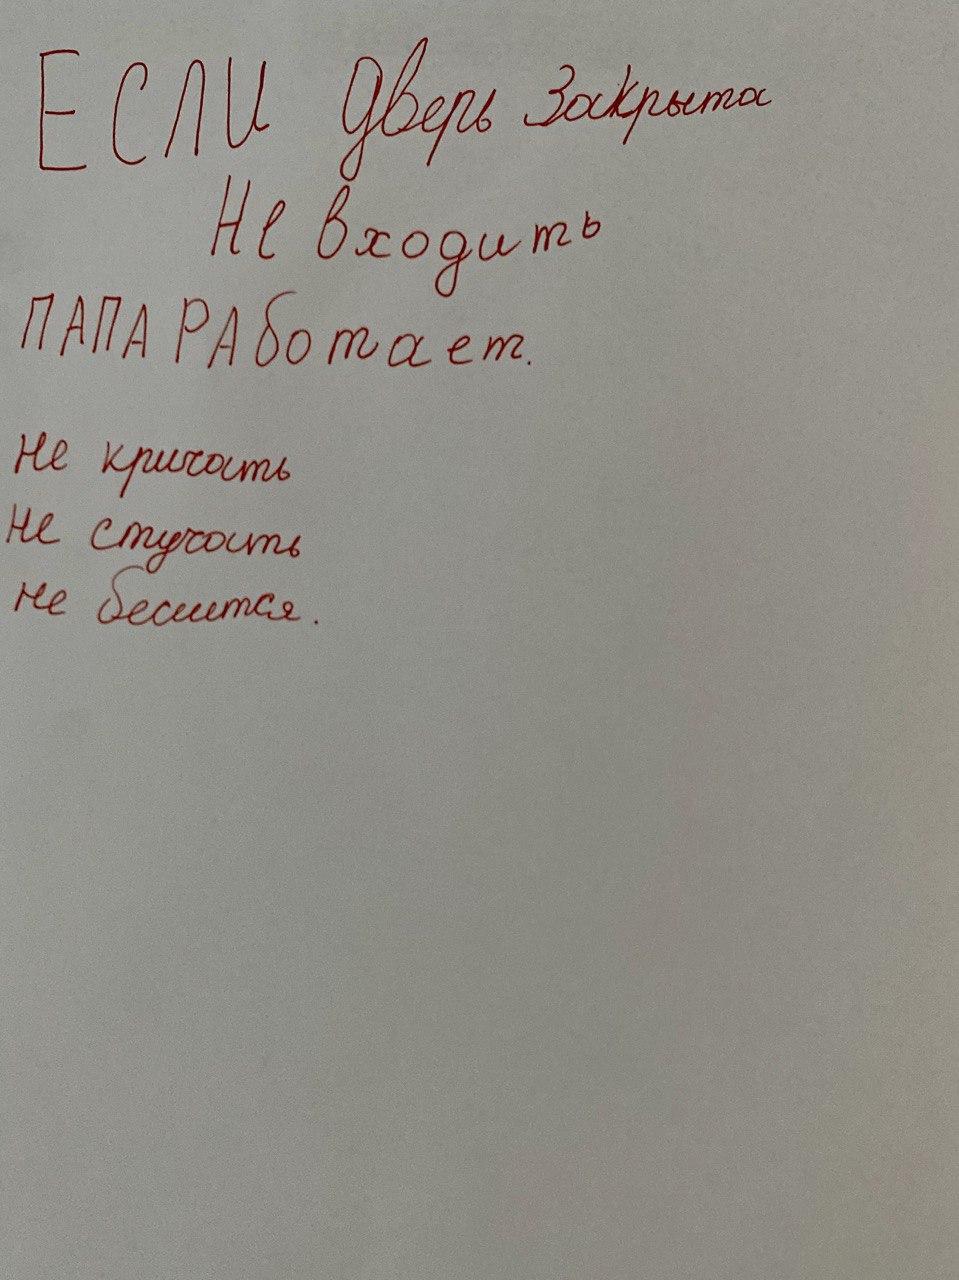 ЕСЛИ дверь закрыта
Не входить
ПАПА РАботает.
не кричать
не стучать
не бесится.